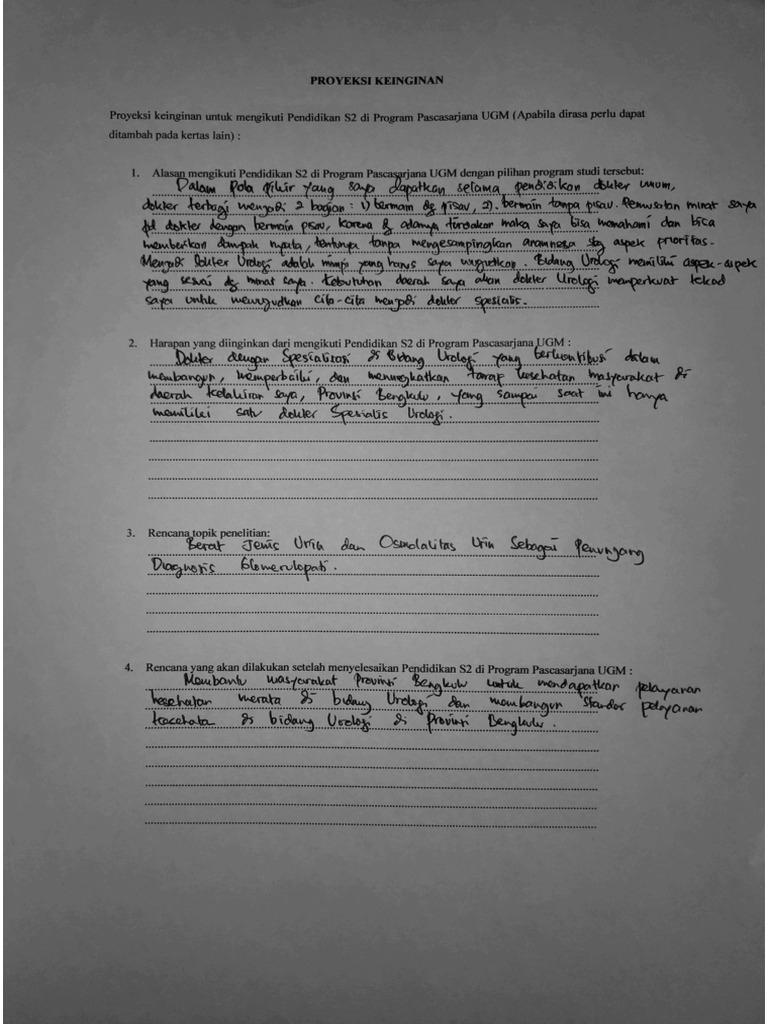 PROYEKSI KEINGINAN
Proyeksi keinginan untuk mengikuti Pendidikan S2 di Program Pascasarjana UGM (Apabila dirasa perlu dapat
ditambah pada kertas lain) :
1. Alasan mengikuti Pendidikan S2 di Program Pascasarjana UGM dengan pilihan program studi tersebut:
Dalam Pola pikir yang saya dapatkan selama pendidikan dokter umum,
dokter terbagi menjadi 2 bagian : 1) bermain dg pisau, 2). bermain tanpa pisau. Pemusatan minat saya
jd dokter dengan bermain pisau, karena dg adanya tindakan maka saya bisa memahami dan bisa
memberikan dampak nyata, tentunya tanpa mengesampingkan anamnesa sbg aspek prioritas.
Menjadi Dokter Urologi adalah mimpi yang harus saya wujudkan. Bidang Urologi memiliki aspek-aspek
yang sesuai dg minat saya. Kebutuhan daerah saya akan dokter Urologi memperkuat tekad
saya untuk mewujudkan cita-cita menjadi dokter spesialis.
2. Harapan yang diinginkan dari mengikuti Pendidikan S2 di Program Pascasarjana UGM :
Dokter dengan Spesialisasi di Bidang Urologi yang berkontribusi dalam
membangun, memperbaiki, dan meningkatkan taraf kesehatan masyarakat di
daerah kelahiran saya, Provinsi Bengkulu, yang sampai saat ini hanya
memiliki satu dokter Spesialis Urologi.
3. Rencana topik penelitian:
Berat Jenis Urin dan Osmolalitas Urin Sebagai Penunjang
Diagnosis Glomerulopati.
4. Rencana yang akan dilakukan setelah menyelesaikan Pendidikan S2 di Program Pascasarjana UGM :
Membantu masyarakat Provinsi Bengkulu untuk mendapatkan pelayanan
kesehatan merata di bidang Urologi dan membangun standar pelayanan
di bidang Urologi di Provinsi Bengkulu.